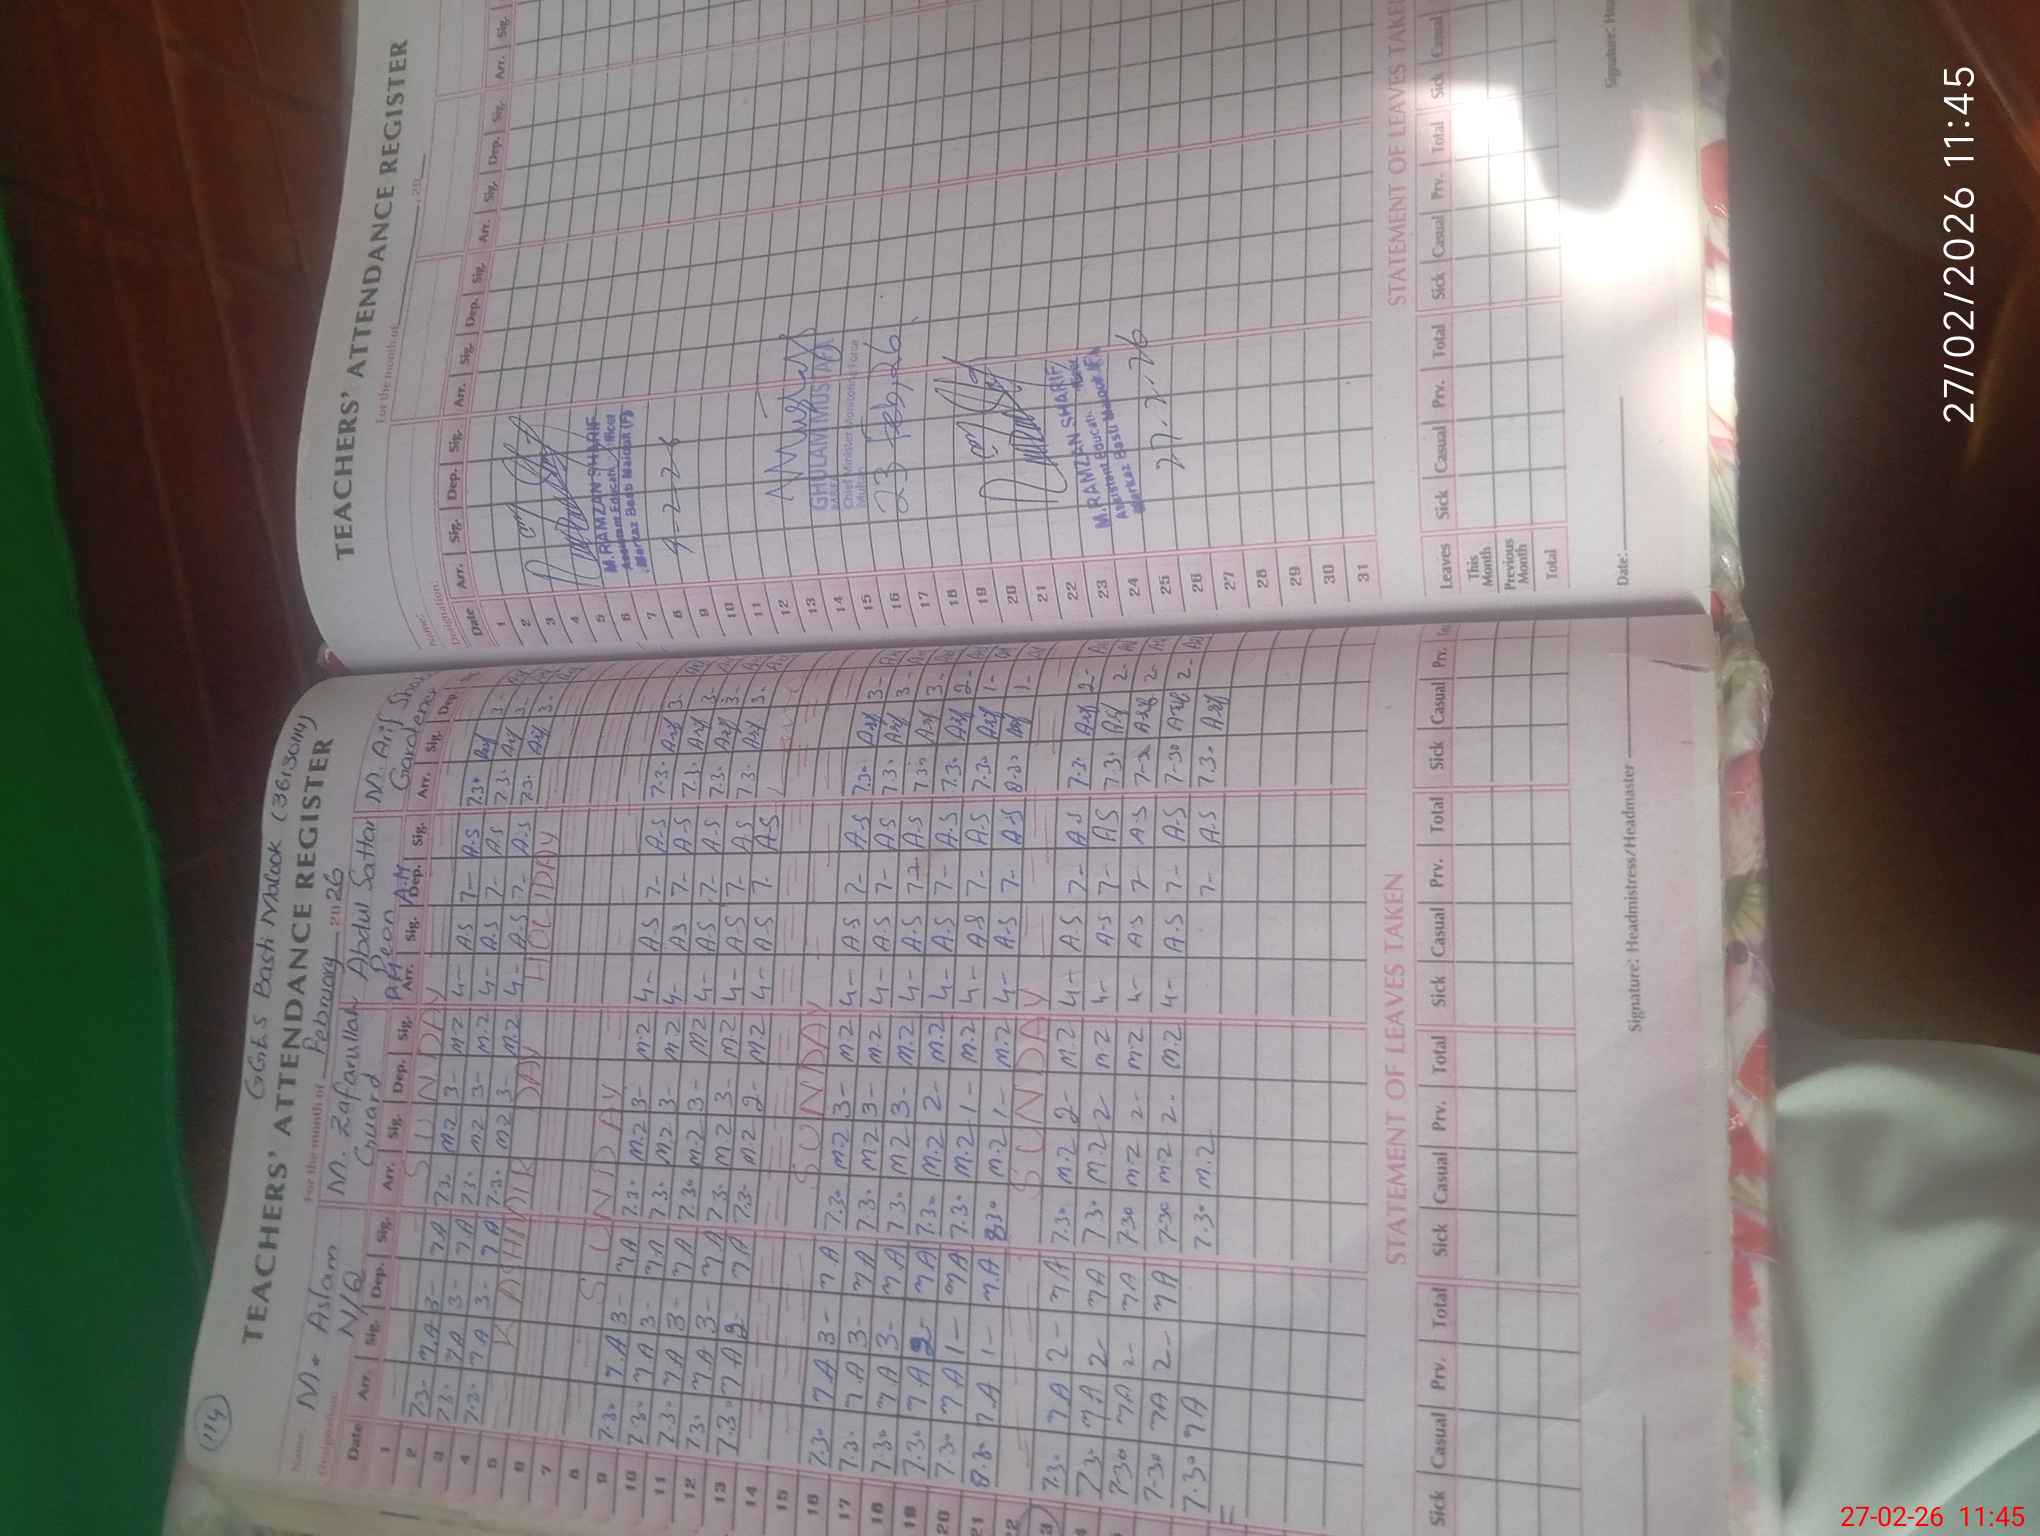 114
GGHS Basti Malook (36130114)
TEACHERS' ATTENDANCE REGISTER
For the month of February 2026
Name: M. Aslam M. Zafarullah Abdul Sattar M. Arif
Designation: N/Q Guard Peon Gardener
Date Arr. Sig. Dep. Sig. Arr. Sig. Dep. Sig. Arr. Sig. Dep. Sig. Arr. Sig. Dep.
1 SUNDAY
2 7.30 M.A 3- M.A 7.30 M.Z 3- M.Z 4- A.S 7- A.S 7.30 Arif 3-
3 7.30 M.A 3- M.A 7.30 M.Z 3- M.Z 4- A.S 7- A.S 7.30 Arif 3-
4 7.30 M.A 3- M.A 7.30 M.Z 3- M.Z 4- A.S 7- A.S 7.30 Arif 3-
5 KASHMIR DAY HOLIDAY
6
7
8 SUNDAY
9 7.30 M.A 3- M.A 7.30 M.Z 3- M.Z 4- A.S 7- A.S 7.30 Arif 3-
10 7.30 M.A 3- M.A 7.30 M.Z 3- M.Z 4- A.S 7- A.S 7.30 Arif 3-
11 7.30 M.A 3- M.A 7.30 M.Z 3- M.Z 4- A.S 7- A.S 7.30 Arif 3-
12 7.30 M.A 3- M.A 7.30 M.Z 3- M.Z 4- A.S 7- A.S 7.30 Arif 3-
13 7.30 M.A 2- M.A 7.30 M.Z 2- M.Z 4- A.S 7- A.S
14
15 SUNDAY
16 7.30 M.A 3- M.A 7.30 M.Z 3- M.Z 4- A.S 7- A.S 7.30 Arif 3-
17 7.30 M.A 3- M.A 7.30 M.Z 3- M.Z 4- A.S 7- A.S 7.30 Arif 3-
18 7.30 M.A 3- M.A 7.30 M.Z 3- M.Z 4- A.S 7- A.S 7.30 Arif 3-
19 7.30 M.A 2- M.A 7.30 M.Z 2- M.Z 4- A.S 7- A.S 7.30 Arif 2-
20 7.30 M.A 1- M.A 7.30 M.Z 1- M.Z 4- A.S 7- A.S 7.30 Arif 1-
21 8.30 M.A 1- M.A 8.30 M.Z 1- M.Z 4- A.S 7- A.S 8.30 Arif 1-
22 SUNDAY
3 7.30 M.A 2- M.A 7.30 M.Z 2- M.Z 4- A.S 7- A.S 7.30 Arif 2-
4 7.30 M.A 2- M.A 7.30 M.Z 2- M.Z 4- A.S 7- A.S 7.30 Arif 2-
7-30 M.A 2- M.A 7-30 M.Z 2- M.Z 4- A.S 7- A.S 7-30 Arif 2-
7-30 M.A 2- M.A 7-30 M.Z 2- M.Z 4- A.S 7- A.S 7-30 Arif 2-
7.30 M.A 7.30 M.Z 7- A.S 7.30 Arif
STATEMENT OF LEAVES TAKEN
Sick Casual Prv. Total Sick Casual Prv. Total Sick Casual Prv. Total Sick Casual Prv.
Signature: Headmistress/Headmaster
TEACHERS' ATTENDANCE REGISTER
For the month of , 20
Name:
Designation:
Date Arr. Sig. Dep. Sig. Arr. Sig. Dep. Sig. Arr. Sig. Dep. Sig. Arr. Sig.
1
2
3
4
5
6
7
8
9
10
11
12
13
14
15
16
17
18
19
20
21
22
23
24
25
26
27
28
29
30
31
M. RAMZAN SHARIF
Assistant Education Officer
Markaz Basti Malook (F)
9-2-26
GHULAM MUSTAFA
Chief Minister Monitoring Force
23 Feb, 26
M. RAMZAN SHARIF
Assistant Education Officer
Markaz Basti Malook
27.2.26
STATEMENT OF LEAVES TAKEN
Leaves Sick Casual Prv. Total Sick Casual Prv. Total Sick Casual
This Month
Previous Month
Total
Date:
Signature:
27/02/2026 11:45
27-02-26 11:45